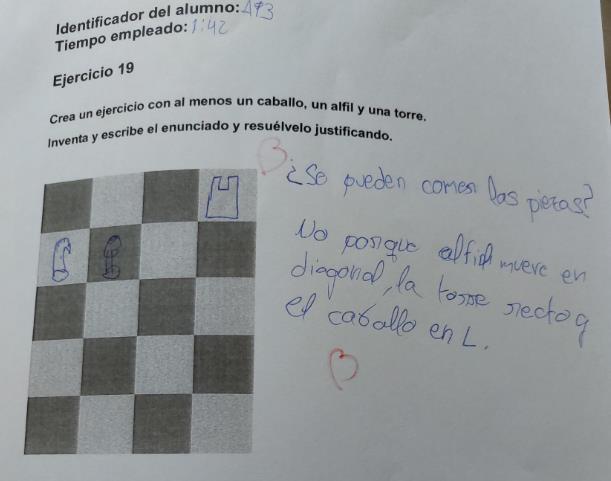 Identificador del alumno: A93
Tiempo empleado: 1:42
Ejercicio 19
Crea un ejercicio con al menos un caballo, un alfil y una torre.
Inventa y escribe el enunciado y resuélvelo justificando.
¿Se pueden comer las piezas?
No porque alfil muere en
diagonal, la torre recto y
el caballo en L.